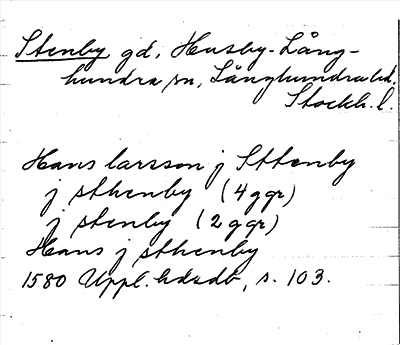 Stenby gd, Husby-Lång-
hundra sn, Långhundra hd,
Stockh. l.
Hans larsson j Sttenby
j sthenby (4 ggr)
j stenby (2 ggr)
Hans j sthenby
1580 Uppl. hdadb, s. 103.